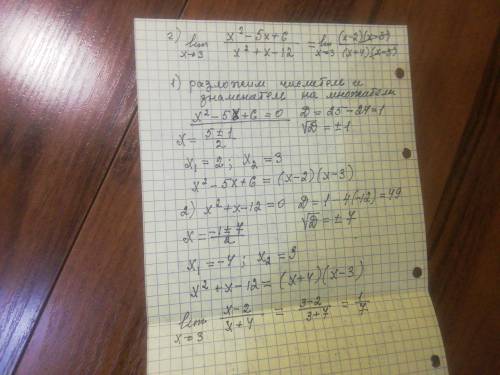 г) lim x→3 (x² - 5x + 6)/(x² + x - 12) = lim x→3 (x-2)(x-3)/(x+4)(x-3)
1) разложим числитель и
знаменатель на множители
x² - 5x + 6 = 0   D = 25 - 24 = 1
x = (5 ± 1)/2   √D = ± 1
x₁ = 2 ; x₂ = 3
x² - 5x + 6 = (x-2)(x-3)
2) x² + x - 12 = 0   D = 1 - 4(-12) = 49
x = (-1 ± 7)/2   √D = ± 7
x₁ = -4 ; x₂ = 3
x² + x - 12 = (x+4)(x-3)
lim x→3 (x-2)/(x+4) = (3-2)/(3+4) = 1/7